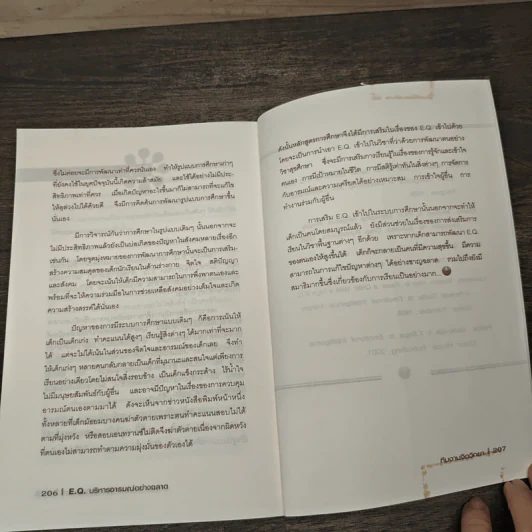 ซึ่งไม่ค่อยจะมีการพัฒนาเท่าที่ควรนั่นเอง ทำให้รูปแบบการศึกษาเก่าๆ
ที่ยังคงใช้ในยุคปัจจุบันนี้เกิดความล้าสมัย และใช้ได้อย่างไม่มีประ
สิทธิภาพเท่าที่ควร เมื่อเกิดปัญหาอะไรขึ้นมาก็ไม่สามารถที่จะแก้ไข
ให้ลุล่วงไปได้ด้วยดี จึงมีการคิดค้นการพัฒนารูปแบบการศึกษาขึ้น
นั่นเอง
มีการวิจารณ์กันว่าการศึกษาในรูปแบบเดิมๆ นั้นนอกจากจะ
ไม่มีประสิทธิภาพแล้วยังเป็นบ่อเกิดของปัญหาในสังคมหลายเรื่องอีก
เช่นกัน โดยจุดมุ่งหมายของการพัฒนาการศึกษานั้นจะเป็นการเสริม-
สร้างความสมดุลของเด็กนักเรียนในด้านร่างกาย จิตใจ สติปัญญา
และสังคม โดยจะเน้นให้เด็กมีความสามารถในการพึ่งพาตนเองและ
พร้อมที่จะให้ความร่วมมือในการช่วยเหลือสังคมอย่างเต็มใจและเกิด
ความสร้างสรรค์ได้นั่นเอง
ปัญหาของการมีระบบการศึกษาแบบเดิมๆ ก็คือการเน้นให้
เด็กเป็นเด็กเก่ง ทำคะแนนได้สูงๆ เรียนรู้สิ่งต่างๆ ได้มากเท่าที่จะมาก
ได้ แต่จะไม่ได้เน้นในส่วนของจิตใจและอารมณ์ของเด็กเลย จึงทำ
ให้เด็กเก่งๆ หลายคนกลับกลายเป็นเด็กที่มุมานะและสนใจแต่เพียงการ
เรียนอย่างเดียวโดยไม่สนใจสิ่งรอบข้าง เป็นเด็กแข็งกระด้าง ไร้น้ำใจ
ไม่มีมนุษยสัมพันธ์กับผู้อื่น และอาจมีปัญหาในเรื่องของการควบคุม
อารมณ์ตนเองตามมาได้ ดังจะเห็นจากข่าวหนังสือพิมพ์หน้าหนึ่ง
ทั้งหลายที่เด็กมัธยมบางคนฆ่าตัวตายเพราะตนทำคะแนนสอบไม่ได้
ตามที่มุ่งหวัง หรือสอบเอนทรานซ์ไม่ติดจึงฆ่าตัวตายเนื่องจากผิดหวัง
ที่ตนเองไม่สามารถทำตามความมุ่งมั่นของตัวเองได้
206 | E.Q. บริหารอารมณ์อย่างฉลาด
ดังนั้นหลักสูตรการศึกษาจึงได้มีการเสริมในเรื่องของ E.Q. เข้าไปด้วย
โดยจะเป็นการนำเอา E.Q. เข้าไปในวิชาที่ว่าด้วยการพัฒนาตนอย่าง
วิชาสุขศึกษา ซึ่งจะมีการเสริมการเรียนรู้ในเรื่องของการรู้จักและเข้าใจ
ตนเอง การมีเป้าหมายในชีวิต การมีสติรู้เท่าทันในสิ่งต่างๆ การจัดการ
กับอารมณ์และความเครียดได้อย่างเหมาะสม การเข้าใจผู้อื่น การ
ทำงานร่วมกับผู้อื่น
การเสริม E.Q. เข้าไปในระบบการศึกษานั้นนอกจากจะทำให้
เด็กเป็นคนโดยสมบูรณ์แล้ว ยังมีส่วนช่วยในเรื่องของการส่งเสริมการ
เรียนในวิชาพื้นฐานต่างๆ อีกด้วย เพราะหากเด็กสามารถพัฒนา E.Q.
ของตนเองให้สูงขึ้นได้ เด็กก็จะกลายเป็นคนที่มีความสุขขึ้น มีความ
สามารถในการแก้ไขปัญหาต่างๆ ได้อย่างชาญฉลาด รวมไปถึงยังมี
สมาธิมากขึ้นซึ่งเกี่ยวข้องกับการเรียนเป็นอย่างมาก...
ทีมงานจิตวิทยา | 207